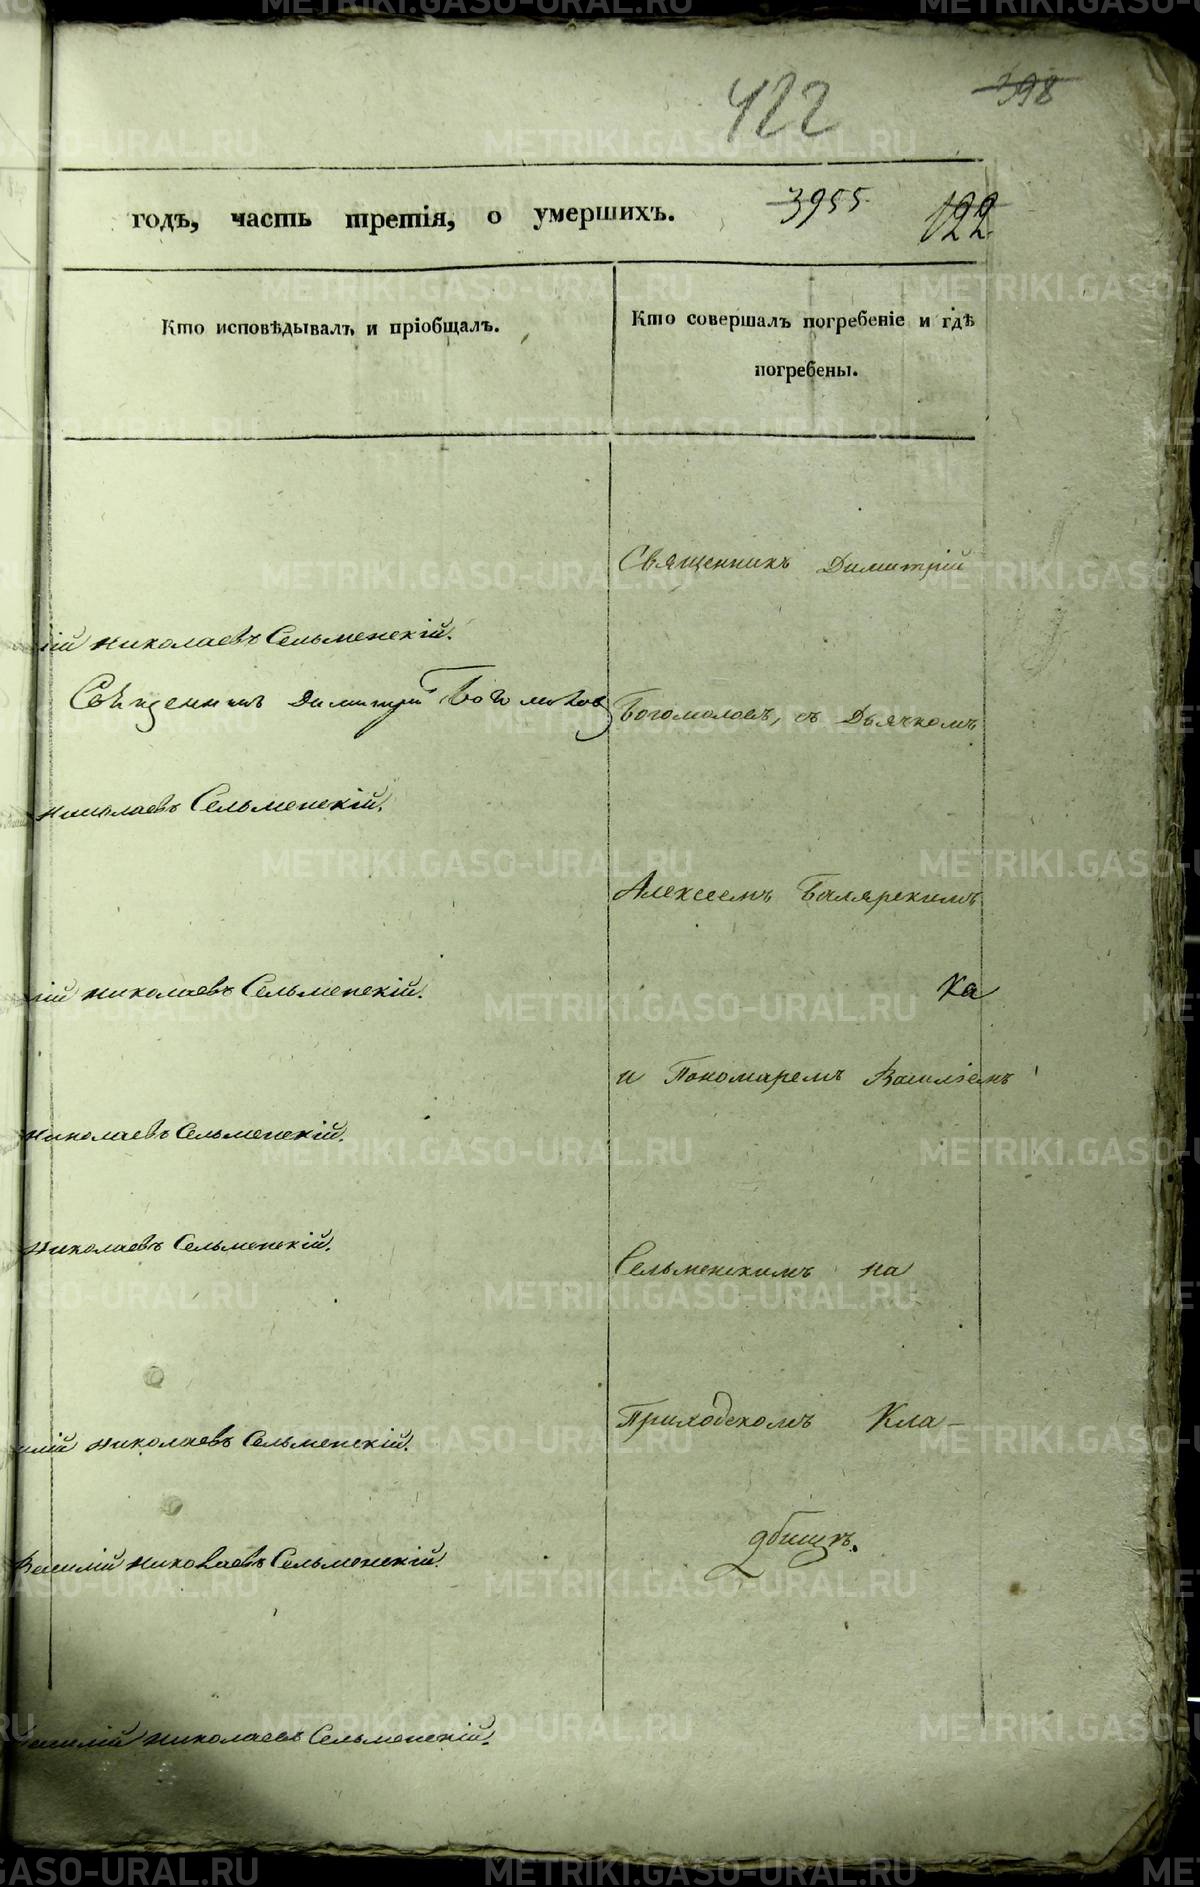 422
398
годъ, часть третія, о умершихъ.
3955
122
Кто исповѣдывалъ и пріобщалъ.
Кто совершалъ погребеніе и гдѣ
погребены.
Священникъ Димитрій
ій Николаевъ Сельменскій.
Священникъ Димитрій Богомоловъ
Богомоловъ, съ Дьячкомъ
Николаевъ Сельменскій.
Алексеемъ
ій Николаевъ Сельменскій.
Ка
и Пономаремъ Василіемъ
Николаевъ Сельменскій.
Николаевъ Сельменскій.
Сельменскимъ на
Приходскомъ Кла-
илій Николаевъ Сельменскій.
дбищѣ.
Василій Николаевъ Сельменскій.
Василій Николаевъ Сельменскій.
METRIKI.GASO-URAL.RU